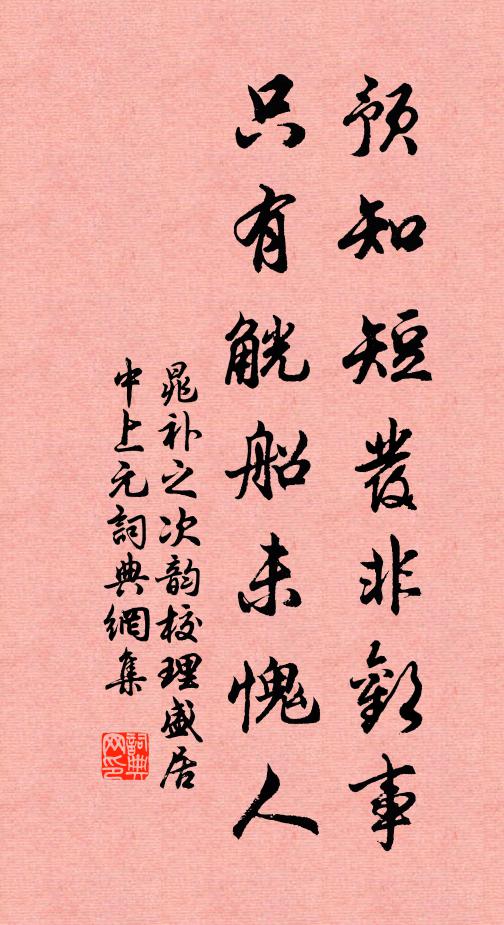 预知短发非欢事
只有觥船未愧人
晁补之次韵校理盛居
中上元詞典網集
詞典网印